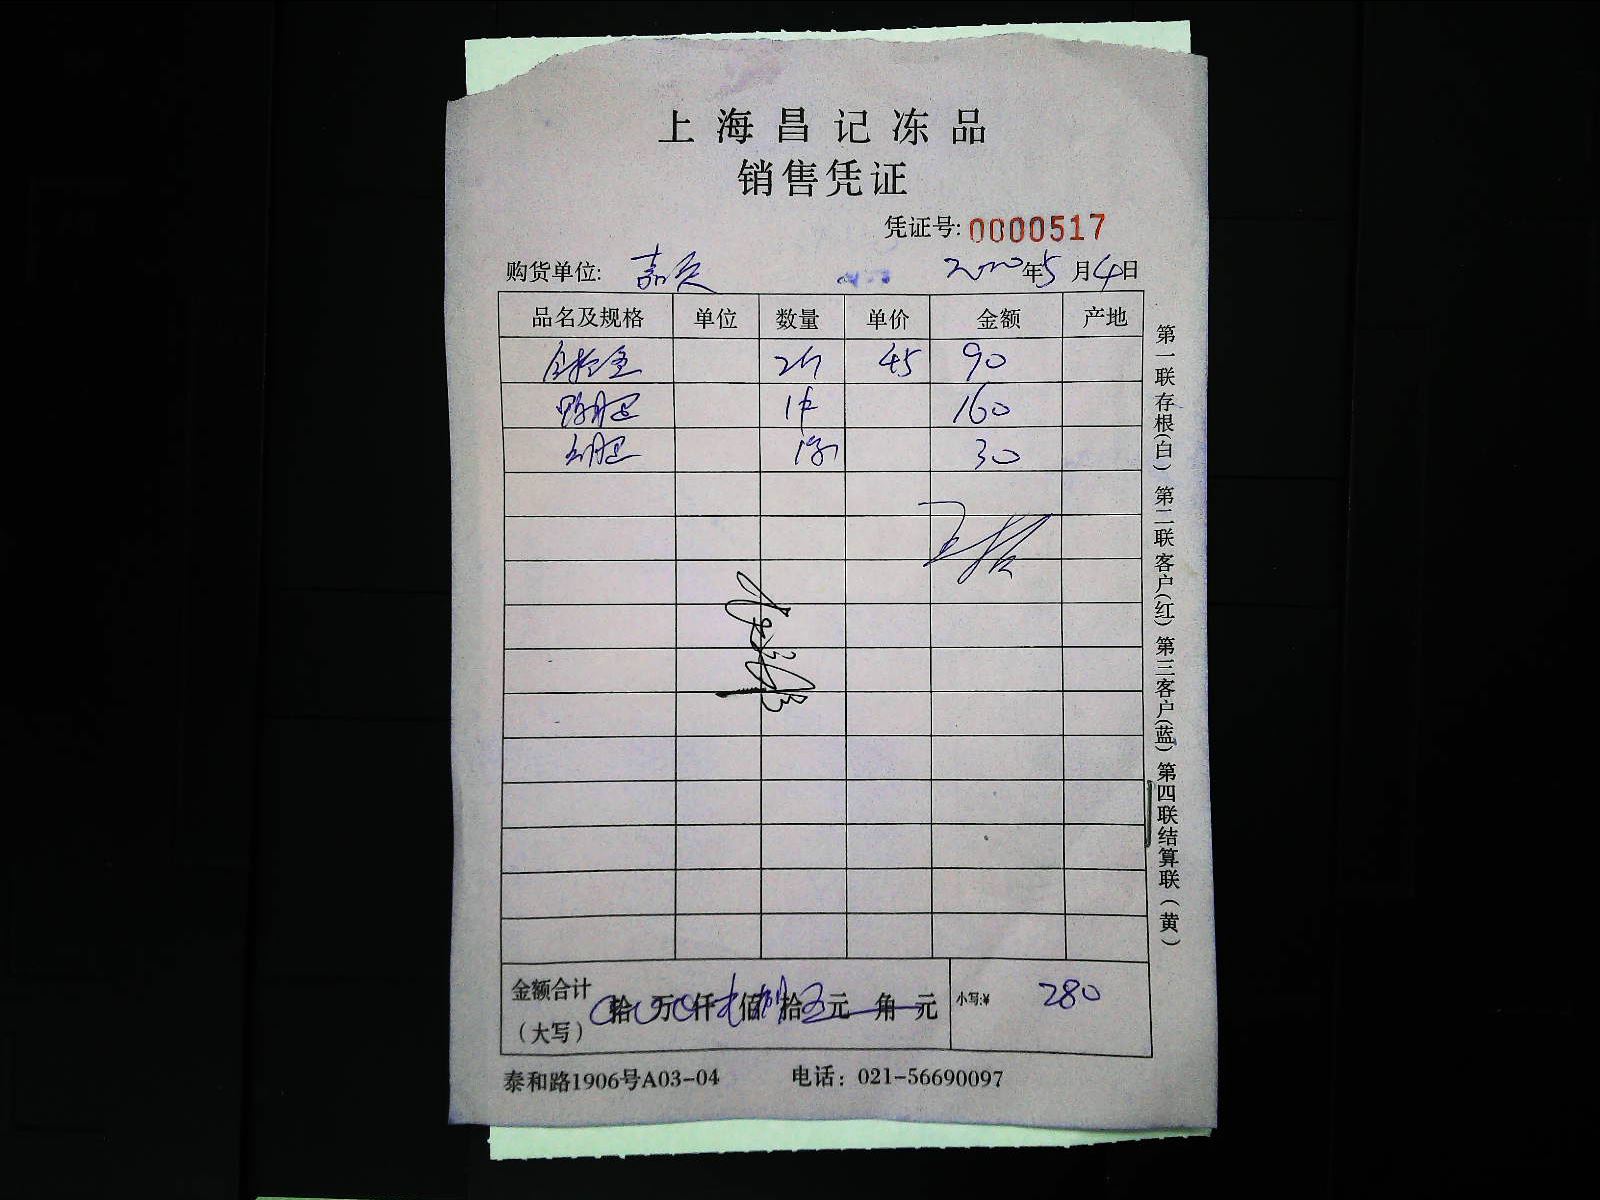 上海昌记冻品
销售凭证
凭证号: 0000517
购货单位: 嘉 2020年5月4日
品名及规格 单位 数量 单价 金额 产地
2 45 90
1 160
1 30
金额合计 拾 万 仟 佰 拾 元 角 元 小写:¥ 280
(大写)
泰和路1906号A03-04 电话: 021-56690097
第一联存根(白) 第二联客户(红) 第三客户(蓝) 第四联结算联(黄)